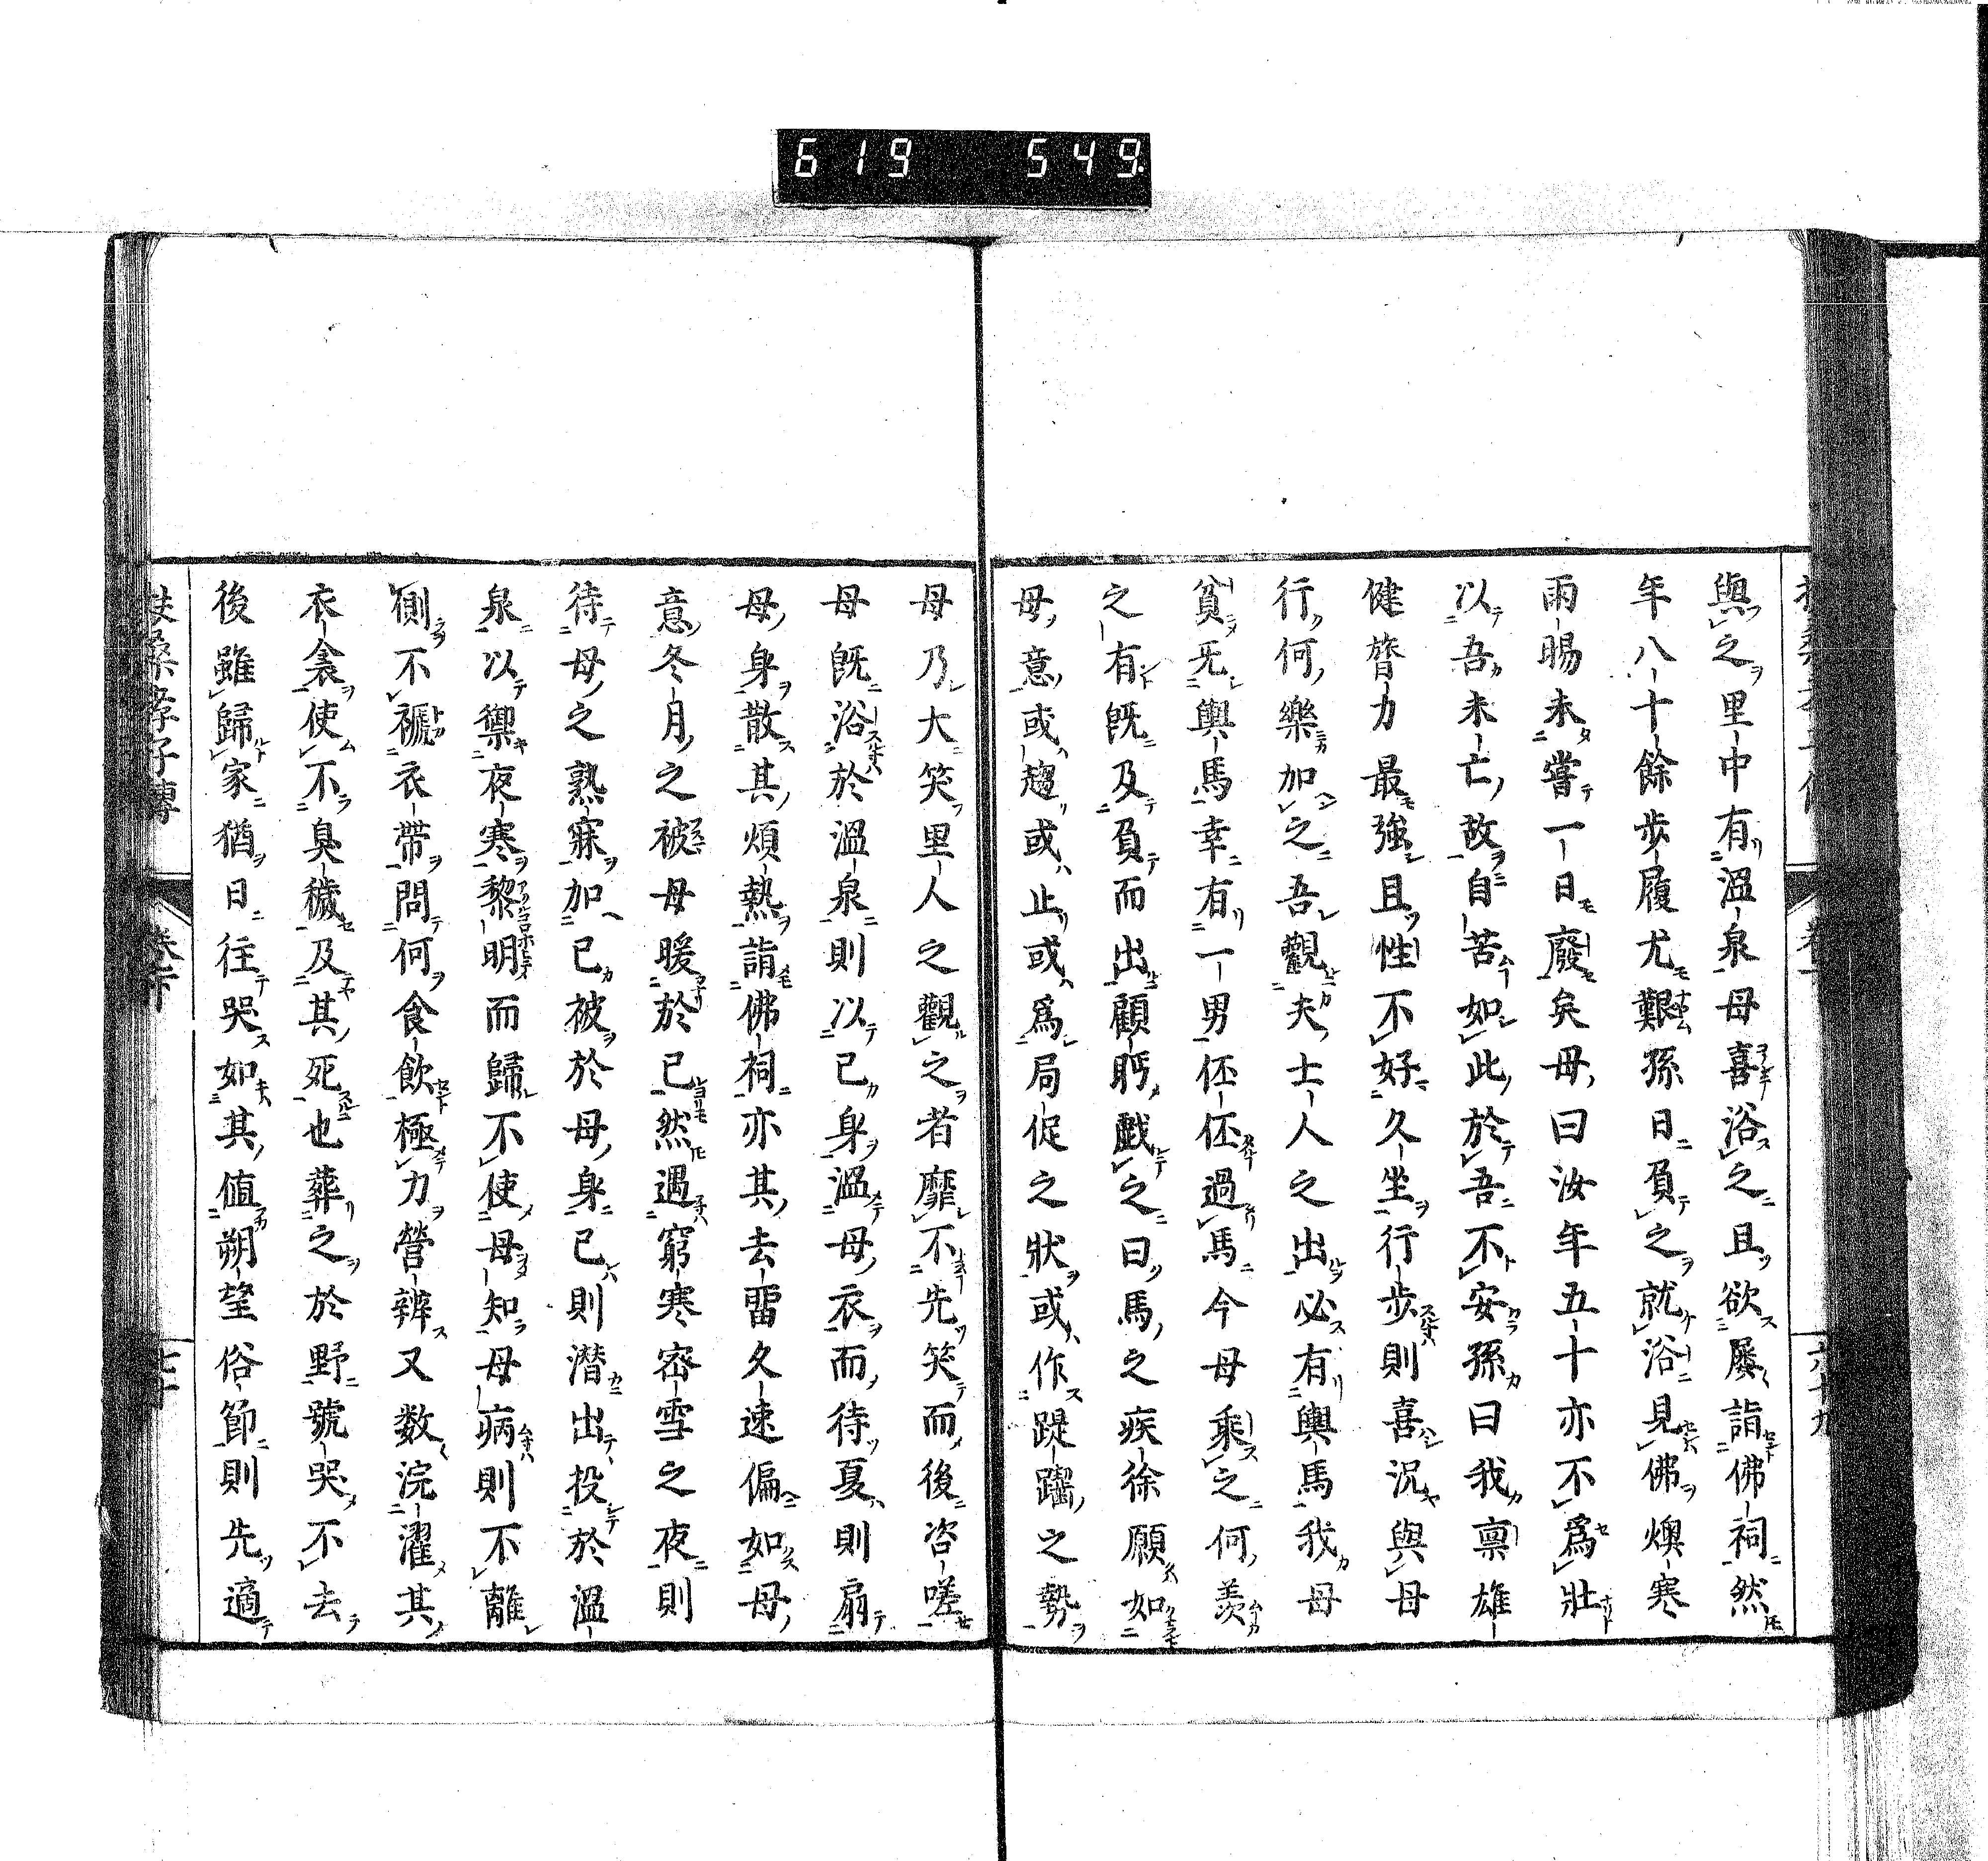 619 549
與之里中有溫泉母喜浴之且欲屢詣佛祠然
年八十餘步履尤艱孫日負之就浴見佛燠寒
雨暘未嘗一日廢矣母曰汝年五十亦不爲壯
以吾未亡故自苦如此於吾不安孫曰我禀雄
健膂力最強且性不好久坐行步則喜況與母
行何樂加之吾觀夫士人之出必有輿馬我母
貧无輿馬幸有一男伾伾過馬今母乘之何羨
之有既及負而出顧眄戯之曰馬之疾徐願如
母意或趨或止或爲局促之狀或作踶躍之勢
母乃大笑里人之觀之者靡不先笑而後咨嗟
母既浴於溫泉則以己身溫母衣而待夏則扇
母身散其煩熱詣佛祠亦其去畱久速偏如母
意冬月之被母暖於己然遇窮寒密雪之夜則
待母之熟寐加己被於母身己則潜出投於溫
泉以禦夜寒黎明而歸不使母知母病則不離
側不褫衣帶問何食飲極力營辨又数浣濯其
衣衾使不臭穢及其死也葬之於野號哭不去
後雖歸家猶日往哭如其値朔望俗節則先適
扶桑孝子傳